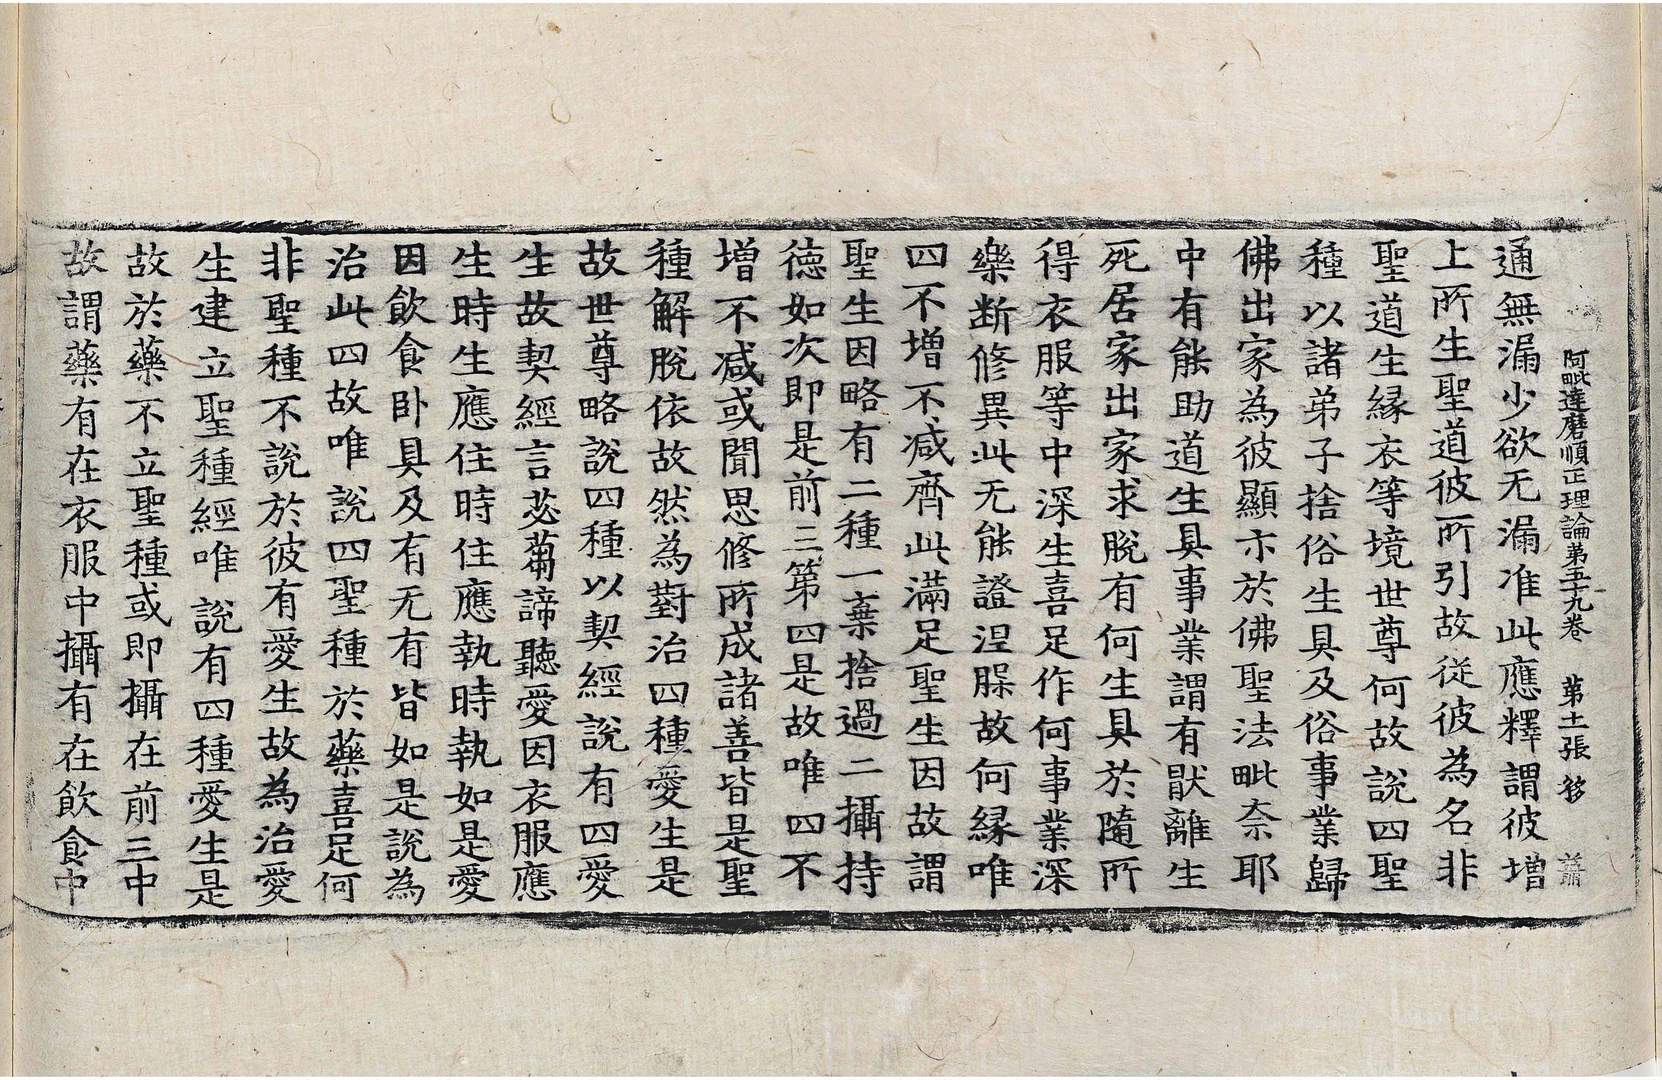 阿毗達磨順正理論第五十九卷　第十一張　移　蕭
通無漏少欲无漏准此應釋謂彼增
上所生聖道彼所引故從彼為名非
聖道生緣衣等境世尊何故說四聖
種以諸弟子捨俗生具及俗事業歸
佛出家為彼顯示於佛聖法毗奈耶
中有能助道生具事業謂有猒離生
死居家出家求脫有何生具於隨所
得衣服等中深生喜足作何事業深
樂断修異此无能證涅槃故何緣唯
四不增不减齊此滿足聖生因故謂
聖生因略有二種一棄捨過二攝持
德如次即是前三第四是故唯四不
增不减或聞思修所成諸善皆是聖
種解脫依故然為對治四種愛生是
故世尊略說四種以契經說有四愛
生故契經言苾蒭諦聽愛因衣服應
生時生應住時住應執時執如是愛
因飲食卧具及有无有皆如是說為
治此四故唯說四聖種於藥喜足何
非聖種不說於彼有愛生故為治愛
生建立聖種經唯說有四種愛生是
故於藥不立聖種或即攝在前三中
故謂藥有在衣服中攝有在飲食中